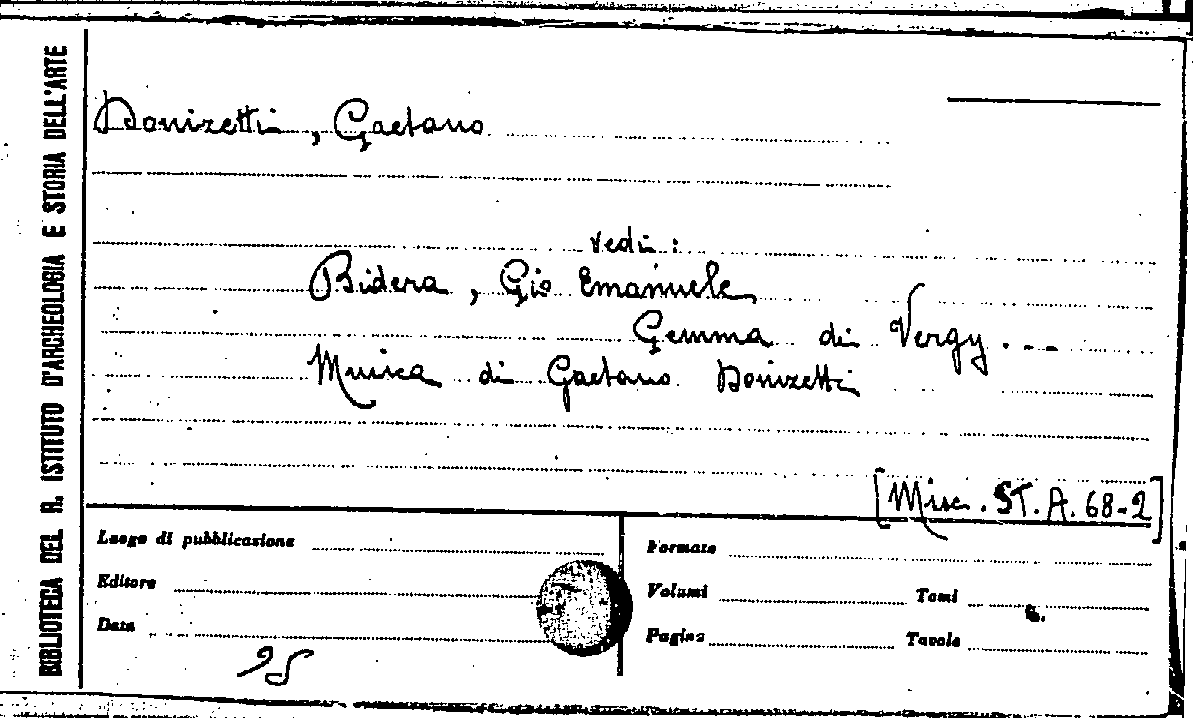 BIBLIOTECA DEL R. ISTITUTO D'ARCHEOLOGIA E STORIA DELL'ARTE
Donizetti, Gaetano
vedi:
Bidera, Gio Emanuele
Gemma di Vergy...
Musica di Gaetano Donizetti
[Misc. ST. A. 68-2]
Luogo di pubblicazione
Editore
Data
Formato
Volumi Tomi
Pagine Tavole